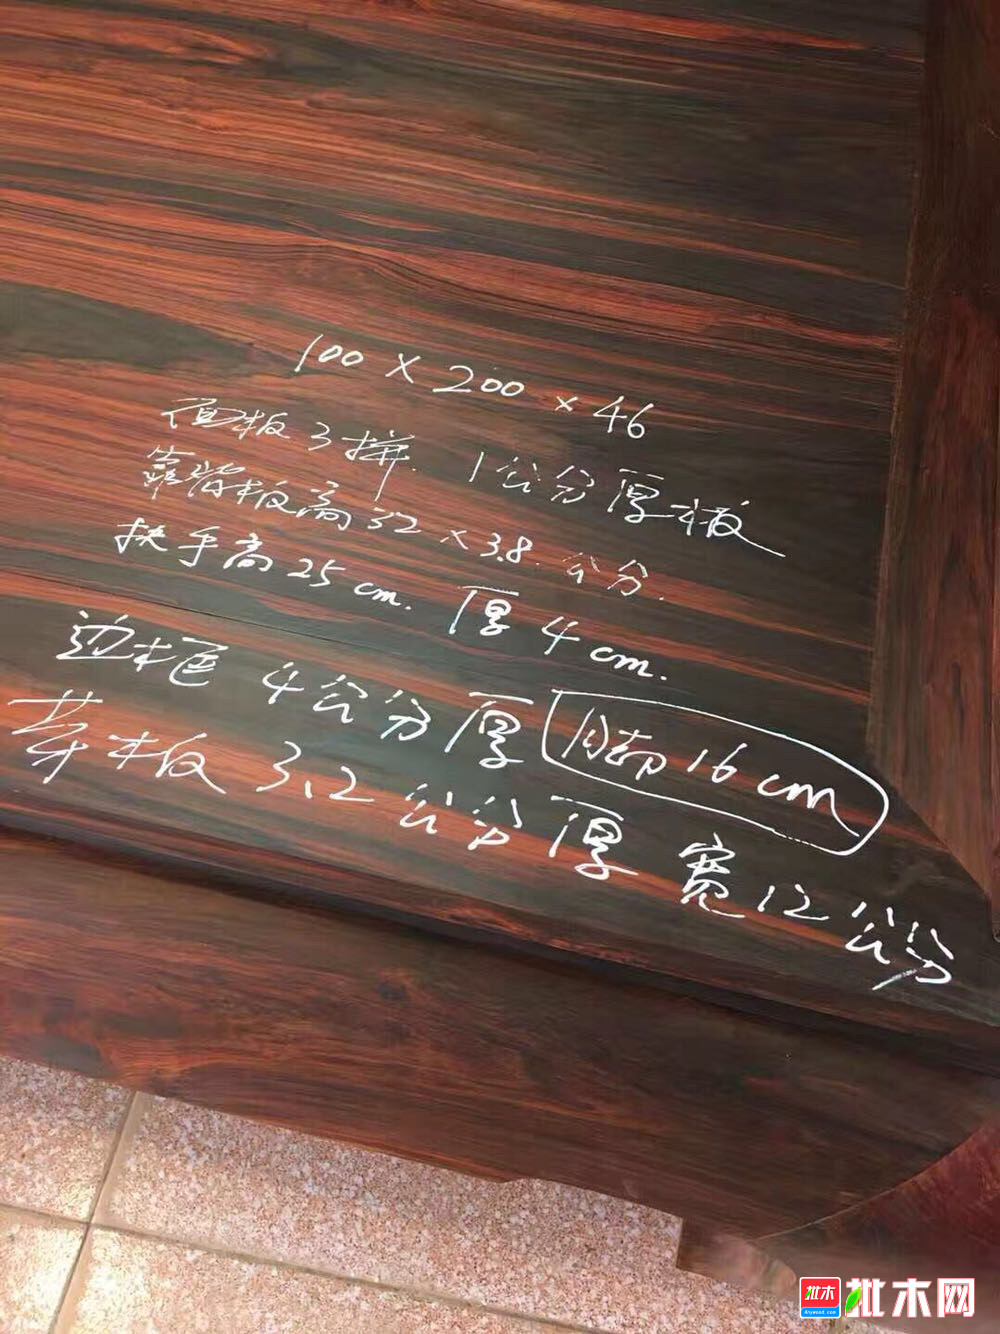 100×200×46
面板3拼. 1公分厚板
靠背板高32×3.8.公分.
扶手高25cm. 厚4cm.
边框 4公分厚 脚16cm
芽板 3.2公分厚 宽12公分
批木
Anywood.com
批木网